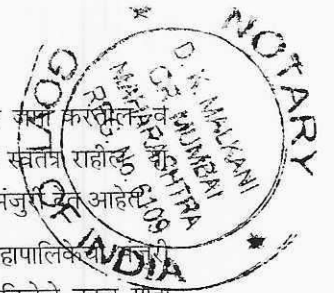 NOTARY
GOVT. OF INDIA
D. K. MALKANI
GR. MUMBAI
MAHARASHTRA
REG. No. 6109
जमा करतील व
स्वतंत्र राहील
मंजुरी देत आहेत
हापालिकेची मंजुरी